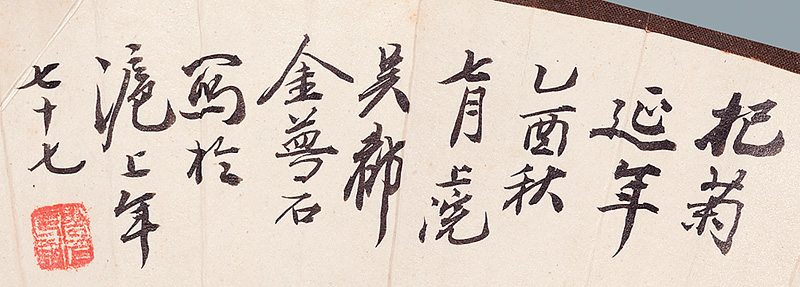 杞菊
延年
乙酉秋
七月上浣
吳郡
金夢石
寫於
滬上年
七十七